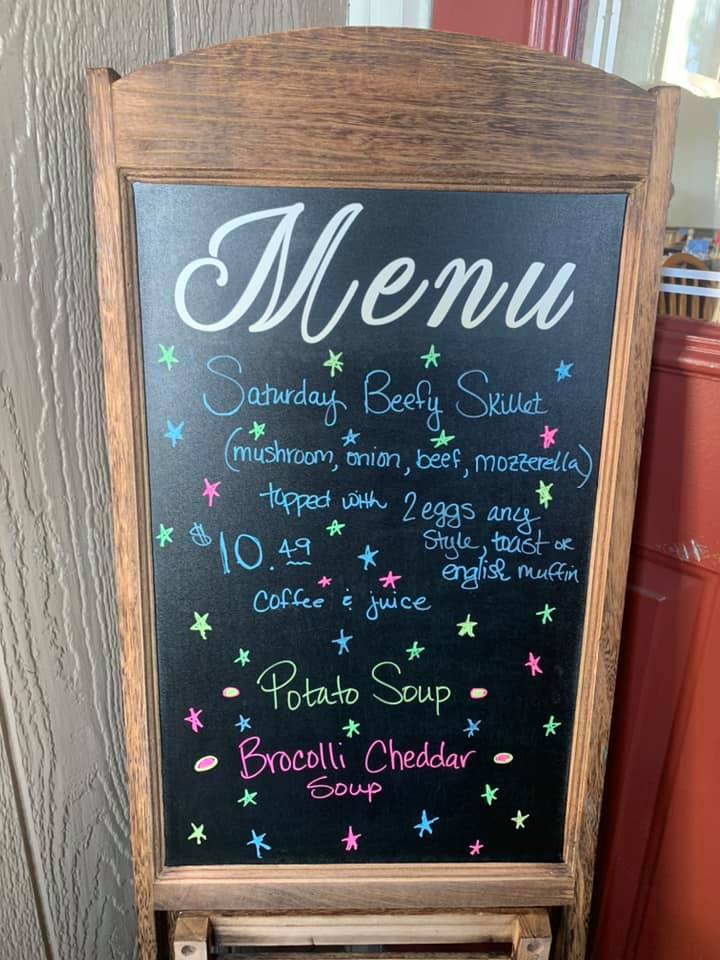 Menu
Saturday Beefy Skillet
(mushroom, onion, beef, mozzerella)
topped with 2 eggs any
style, toast or
english muffin
$10.49
coffee & juice
Potato Soup
Brocolli Cheddar
Soup